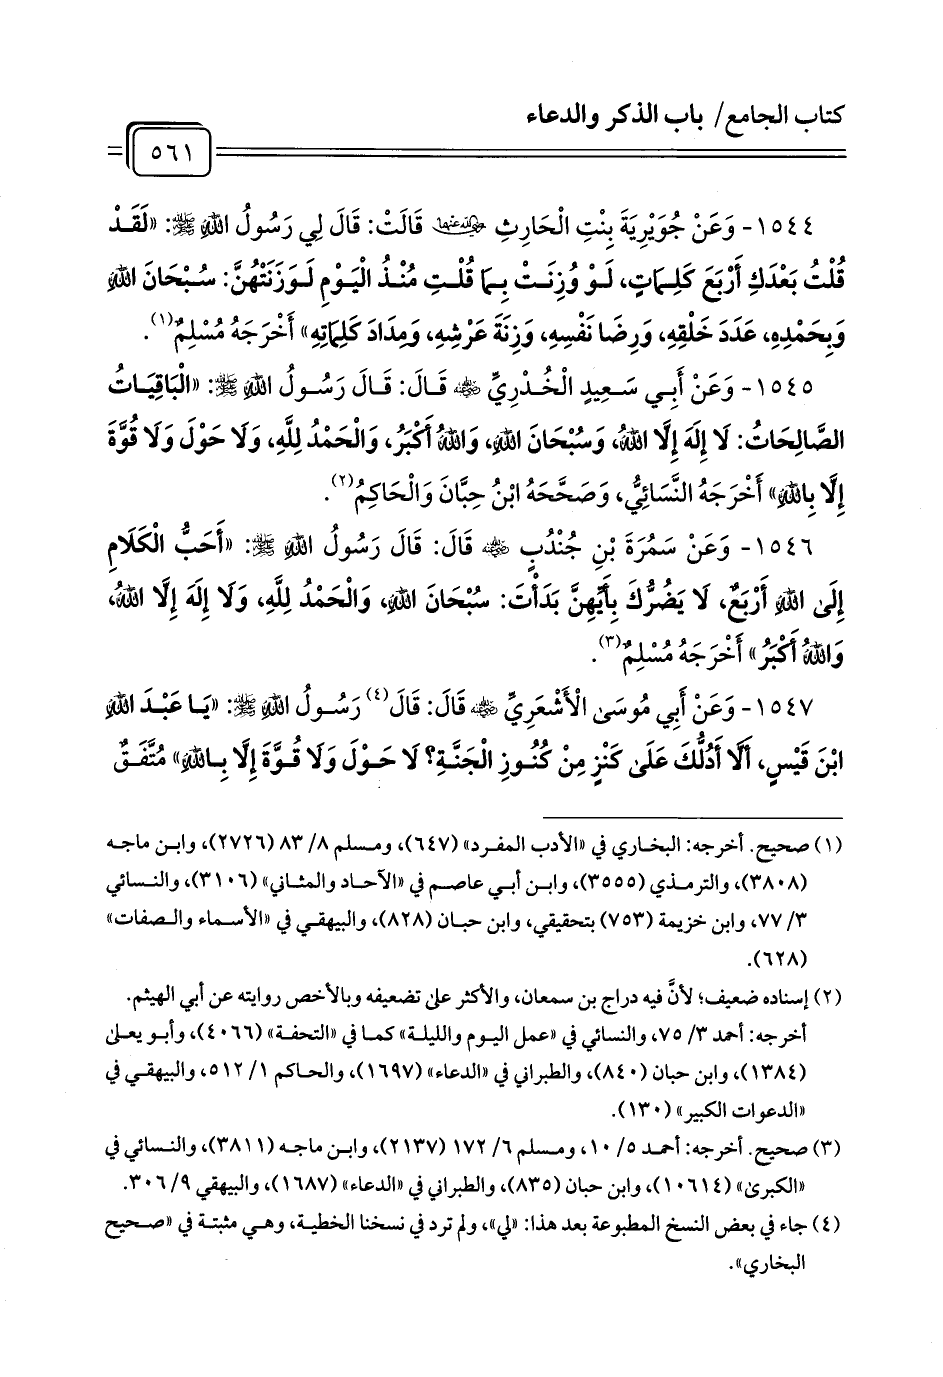 كتاب الجامع/ باب الذكر والدعاء
٥٦١
١٥٤٤- وَعَنْ جُوَيْرِيَةَ بِنْتِ الْحَارِثِ رضي الله عنها قَالَتْ: قَالَ لِي رَسُولُ اللهِ ﷺ: «لَقَدْ
قُلْتُ بَعْدَكِ أَرْبَعَ كَلِمَاتٍ، لَوْ وُزِنَتْ بِمَا قُلْتِ مُنْذُ الْيَوْمِ لَوَزَنَتْهُنَّ: سُبْحَانَ اللهِ
وَبِحَمْدِهِ، عَدَدَ خَلْقِهِ، وَرِضَا نَفْسِهِ، وَزِنَةَ عَرْشِهِ، وَمِدَادَ كَلِمَاتِهِ» أَخْرَجَهُ مُسْلِمٌ(١).
١٥٤٥- وَعَنْ أَبِي سَعِيدٍ الْخُدْرِيِّ رضي الله عنه قَالَ: قَالَ رَسُولُ اللهِ ﷺ: «الْبَاقِيَاتُ
الصَّالِحَاتُ: لَا إِلَهَ إِلَّا اللهُ، وَسُبْحَانَ اللهِ، وَاللهُ أَكْبَرُ، وَالْحَمْدُ لِلَّهِ، وَلَا حَوْلَ وَلَا قُوَّةَ
إِلَّا بِاللهِ» أَخْرَجَهُ النَّسَائِيُّ، وَصَحَّحَهُ ابْنُ حِبَّانَ وَالْحَاكِمُ(٢).
١٥٤٦- وَعَنْ سَمُرَةَ بْنِ جُنْدُبٍ رضي الله عنه قَالَ: قَالَ رَسُولُ اللهِ ﷺ: «أَحَبُّ الْكَلَامِ
إِلَى اللهِ أَرْبَعٌ، لَا يَضُرُّكَ بِأَيِّهِنَّ بَدَأْتَ: سُبْحَانَ اللهِ، وَالْحَمْدُ لِلَّهِ، وَلَا إِلَهَ إِلَّا اللهُ،
وَاللهُ أَكْبَرُ» أَخْرَجَهُ مُسْلِمٌ(٣).
١٥٤٧- وَعَنْ أَبِي مُوسَى الْأَشْعَرِيِّ رضي الله عنه قَالَ: قَالَ(٤) رَسُولُ اللهِ ﷺ: «يَا عَبْدَ اللهِ
ابْنَ قَيْسٍ، أَلَا أَدُلُّكَ عَلَى كَنْزٍ مِنْ كُنُوزِ الْجَنَّةِ؟ لَا حَوْلَ وَلَا قُوَّةَ إِلَّا بِاللهِ» مُتَّفَقٌ
(١) صحيح. أخرجه: البخاري في «الأدب المفرد» (٦٤٧)، ومسلم ٨/ ٨٣ (٢٧٢٦)، وابن ماجه
(٣٨٠٨)، والترمذي (٣٥٥٥)، وابن أبي عاصم في «الآحاد والمثاني» (٣١٠٦)، والنسائي
٣/ ٧٧، وابن خزيمة (٧٥٣) بتحقيقي، وابن حبان (٨٢٨)، والبيهقي في «الأسماء والصفات»
(٦٢٨).
(٢) إسناده ضعيف؛ لأنَّ فيه دراج بن سمعان، والأكثر على تضعيفه وبالأخص روايته عن أبي الهيثم.
أخرجه: أحمد ٣/ ٧٥، والنسائي في «عمل اليوم والليلة» كما في «التحفة» (٤٠٦٦)، وأبو يعلى
(١٣٨٤)، وابن حبان (٨٤٠)، والطبراني في «الدعاء» (١٦٩٧)، والحاكم ١/ ٥١٢، والبيهقي في
«الدعوات الكبير» (١٣٠).
(٣) صحيح. أخرجه: أحمد ٥/ ١٠، ومسلم ٦/ ١٧٢ (٢١٣٧)، وابن ماجه (٣٨١١)، والنسائي في
«الكبرى» (١٠٦١٤)، وابن حبان (٨٣٥)، والطبراني في «الدعاء» (١٦٨٧)، والبيهقي ٩/ ٣٠٦.
(٤) جاء في بعض النسخ المطبوعة بعد هذا: «لي»، ولم ترد في نسخنا الخطية، وهي مثبتة في «صحيح
البخاري».